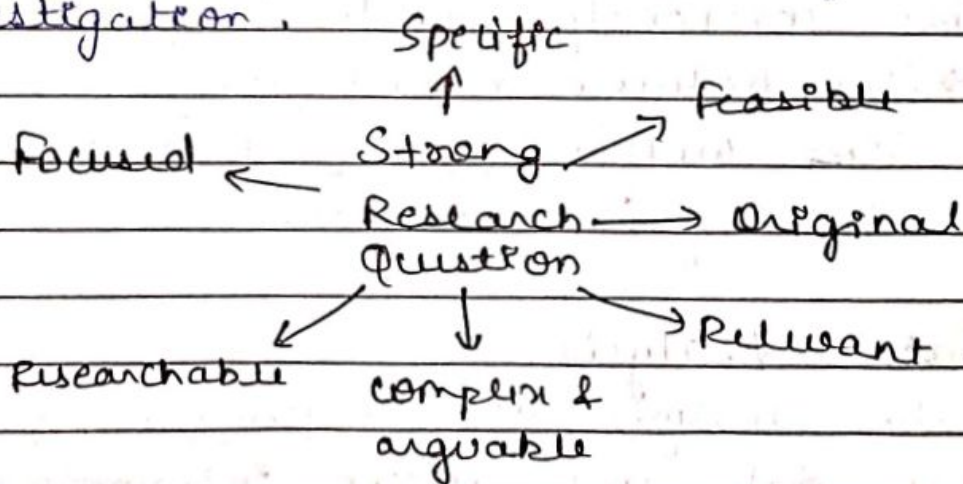 stigation.
Specific
Feasible
Focused
Strong
Research
Question
Original
Relevant
Researchable
complex &
arguable